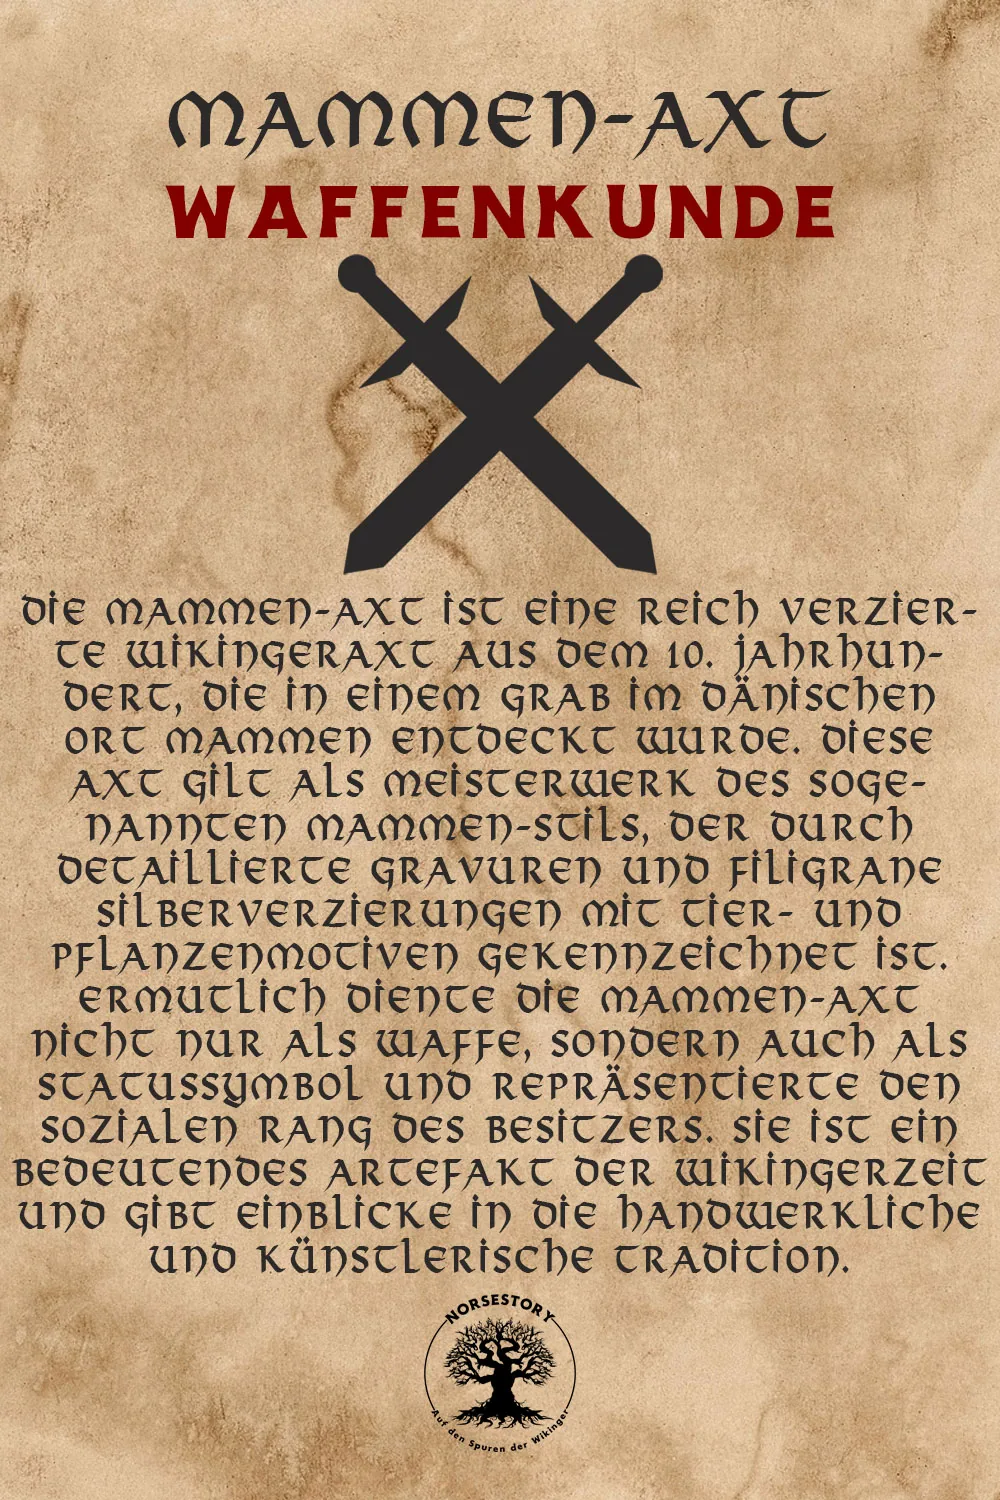 MAMMEN-AXT
WAFFENKUNDE
DIE MAMMEN-AXT IST EINE REICH VERZIER-
TE WIKINGERAXT AUS DEM 10. JAHRHUN-
DERT, DIE IN EINEM GRAB IM DÄNISCHEN
ORT MAMMEN ENTDECKT WURDE. DIESE
AXT GILT ALS MEISTERWERK DES SOGE-
NANNTEN MAMMEN-STILS, DER DURCH
DETAILLIERTE GRAVUREN UND FILIGRANE
SILBERVERZIERUNGEN MIT TIER- UND
PFLANZENMOTIVEN GEKENNZEICHNET IST.
ERMUTLICH DIENTE DIE MAMMEN-AXT
NICHT NUR ALS WAFFE, SONDERN AUCH ALS
STATUSSYMBOL UND REPRÄSENTIERTE DEN
SOZIALEN RANG DES BESITZERS. SIE IST EIN
BEDEUTENDES ARTEFAKT DER WIKINGERZEIT
UND GIBT EINBLICKE IN DIE HANDWERKLICHE
UND KÜNSTLERISCHE TRADITION.
NORSESTORY
Auf den Spuren der Wikinger